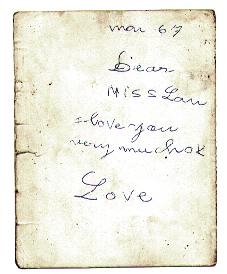 mar 67
Dear
Miss Lau
I love you
very much ok
Love